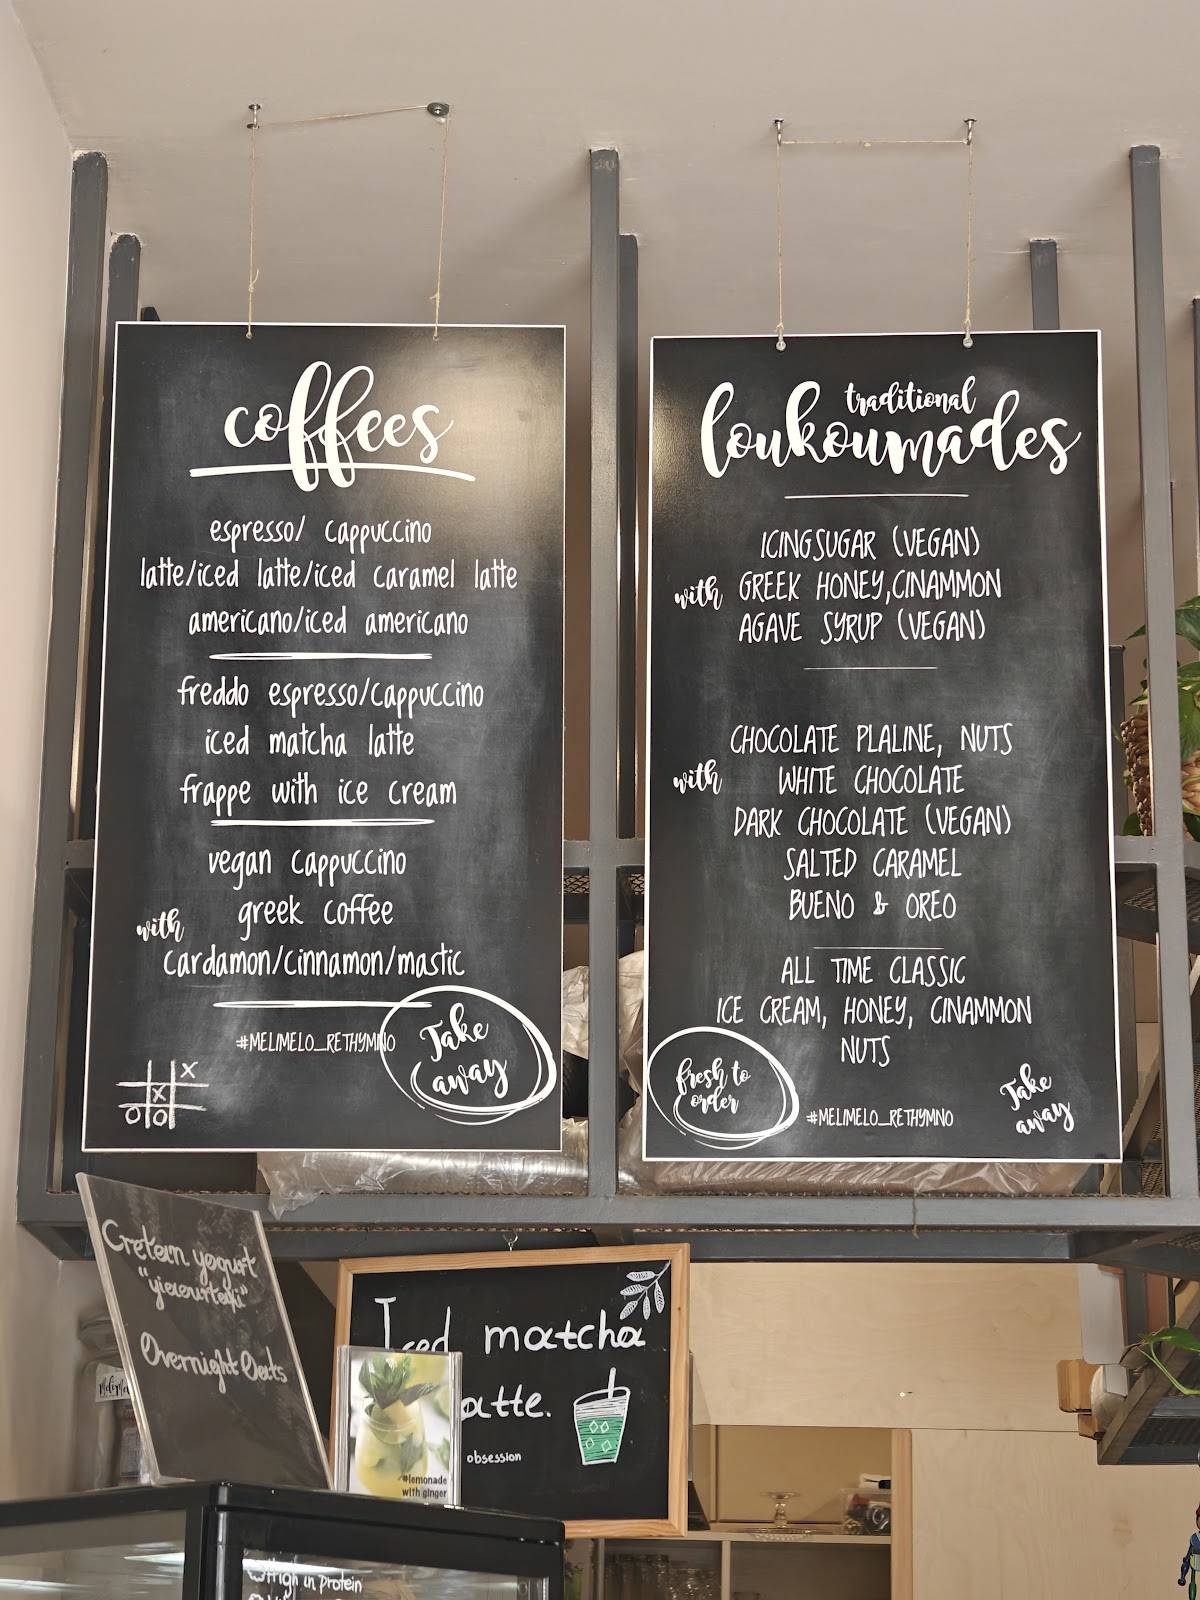 coffees
espresso/ cappuccino
latte/iced latte/iced caramel latte
americano/iced americano
freddo espresso/cappuccino
iced matcha latte
frappe with ice cream
vegan cappuccino
greek coffee
with
cardamon/cinnamon/mastic
#MELIMELO_RETHYMNO
Take
away
X
X
O O
traditional
loukoumades
ICINGSUGAR (VEGAN)
with GREEK HONEY,CINAMMON
AGAVE SYRUP (VEGAN)
CHOCOLATE PLALINE, NUTS
with WHITE CHOCOLATE
DARK CHOCOLATE (VEGAN)
SALTED CARAMEL
BUENO & OREO
ALL TIME CLASSIC
ICE CREAM, HONEY, CINAMMON
NUTS
fresh to
order
#MELIMELO_RETHYMNO
Take
away
Cretan yogurt
"yiaourtaki"
Overnight Oats
Iced matcha
atte.
obsession
#lemonade
with ginger
High in protein